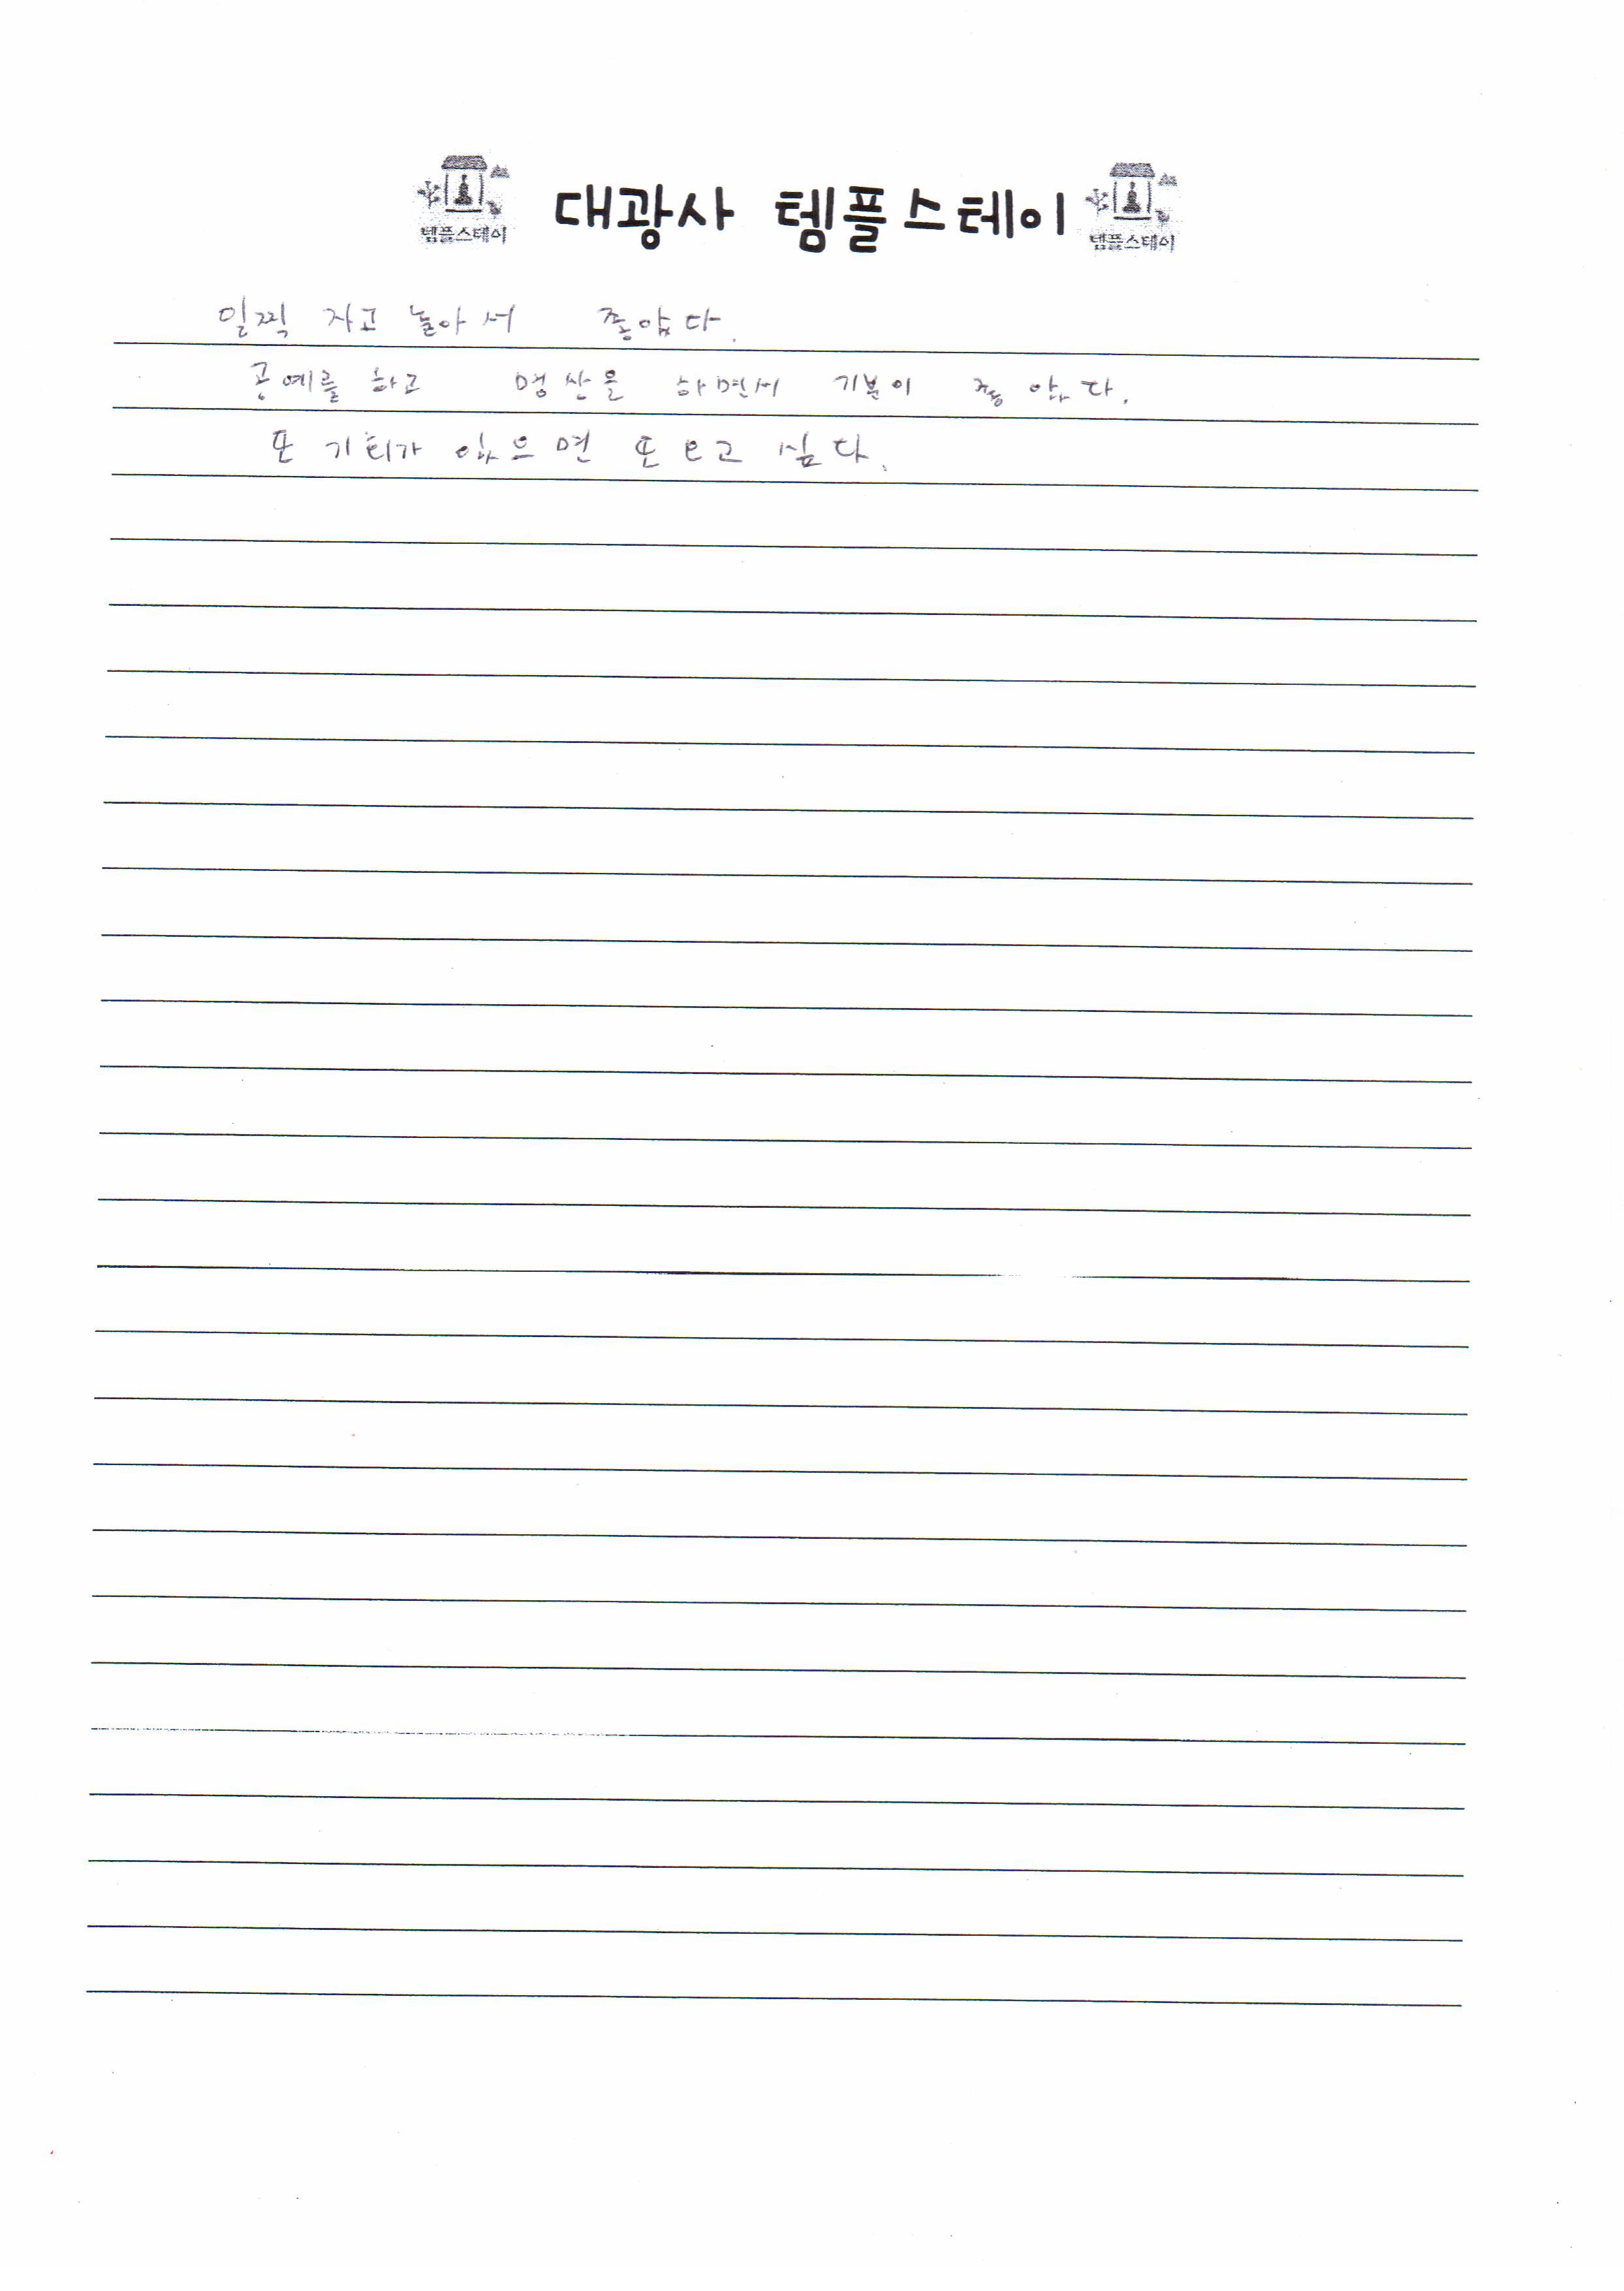 템플스테이 대광사 템플스테이 템플스테이
일찍 자고 놀아서 좋았다.
공예를 하고 명상을 하면서 기분이 좋았다.
또 기회가 있으면 또 오고 싶다.